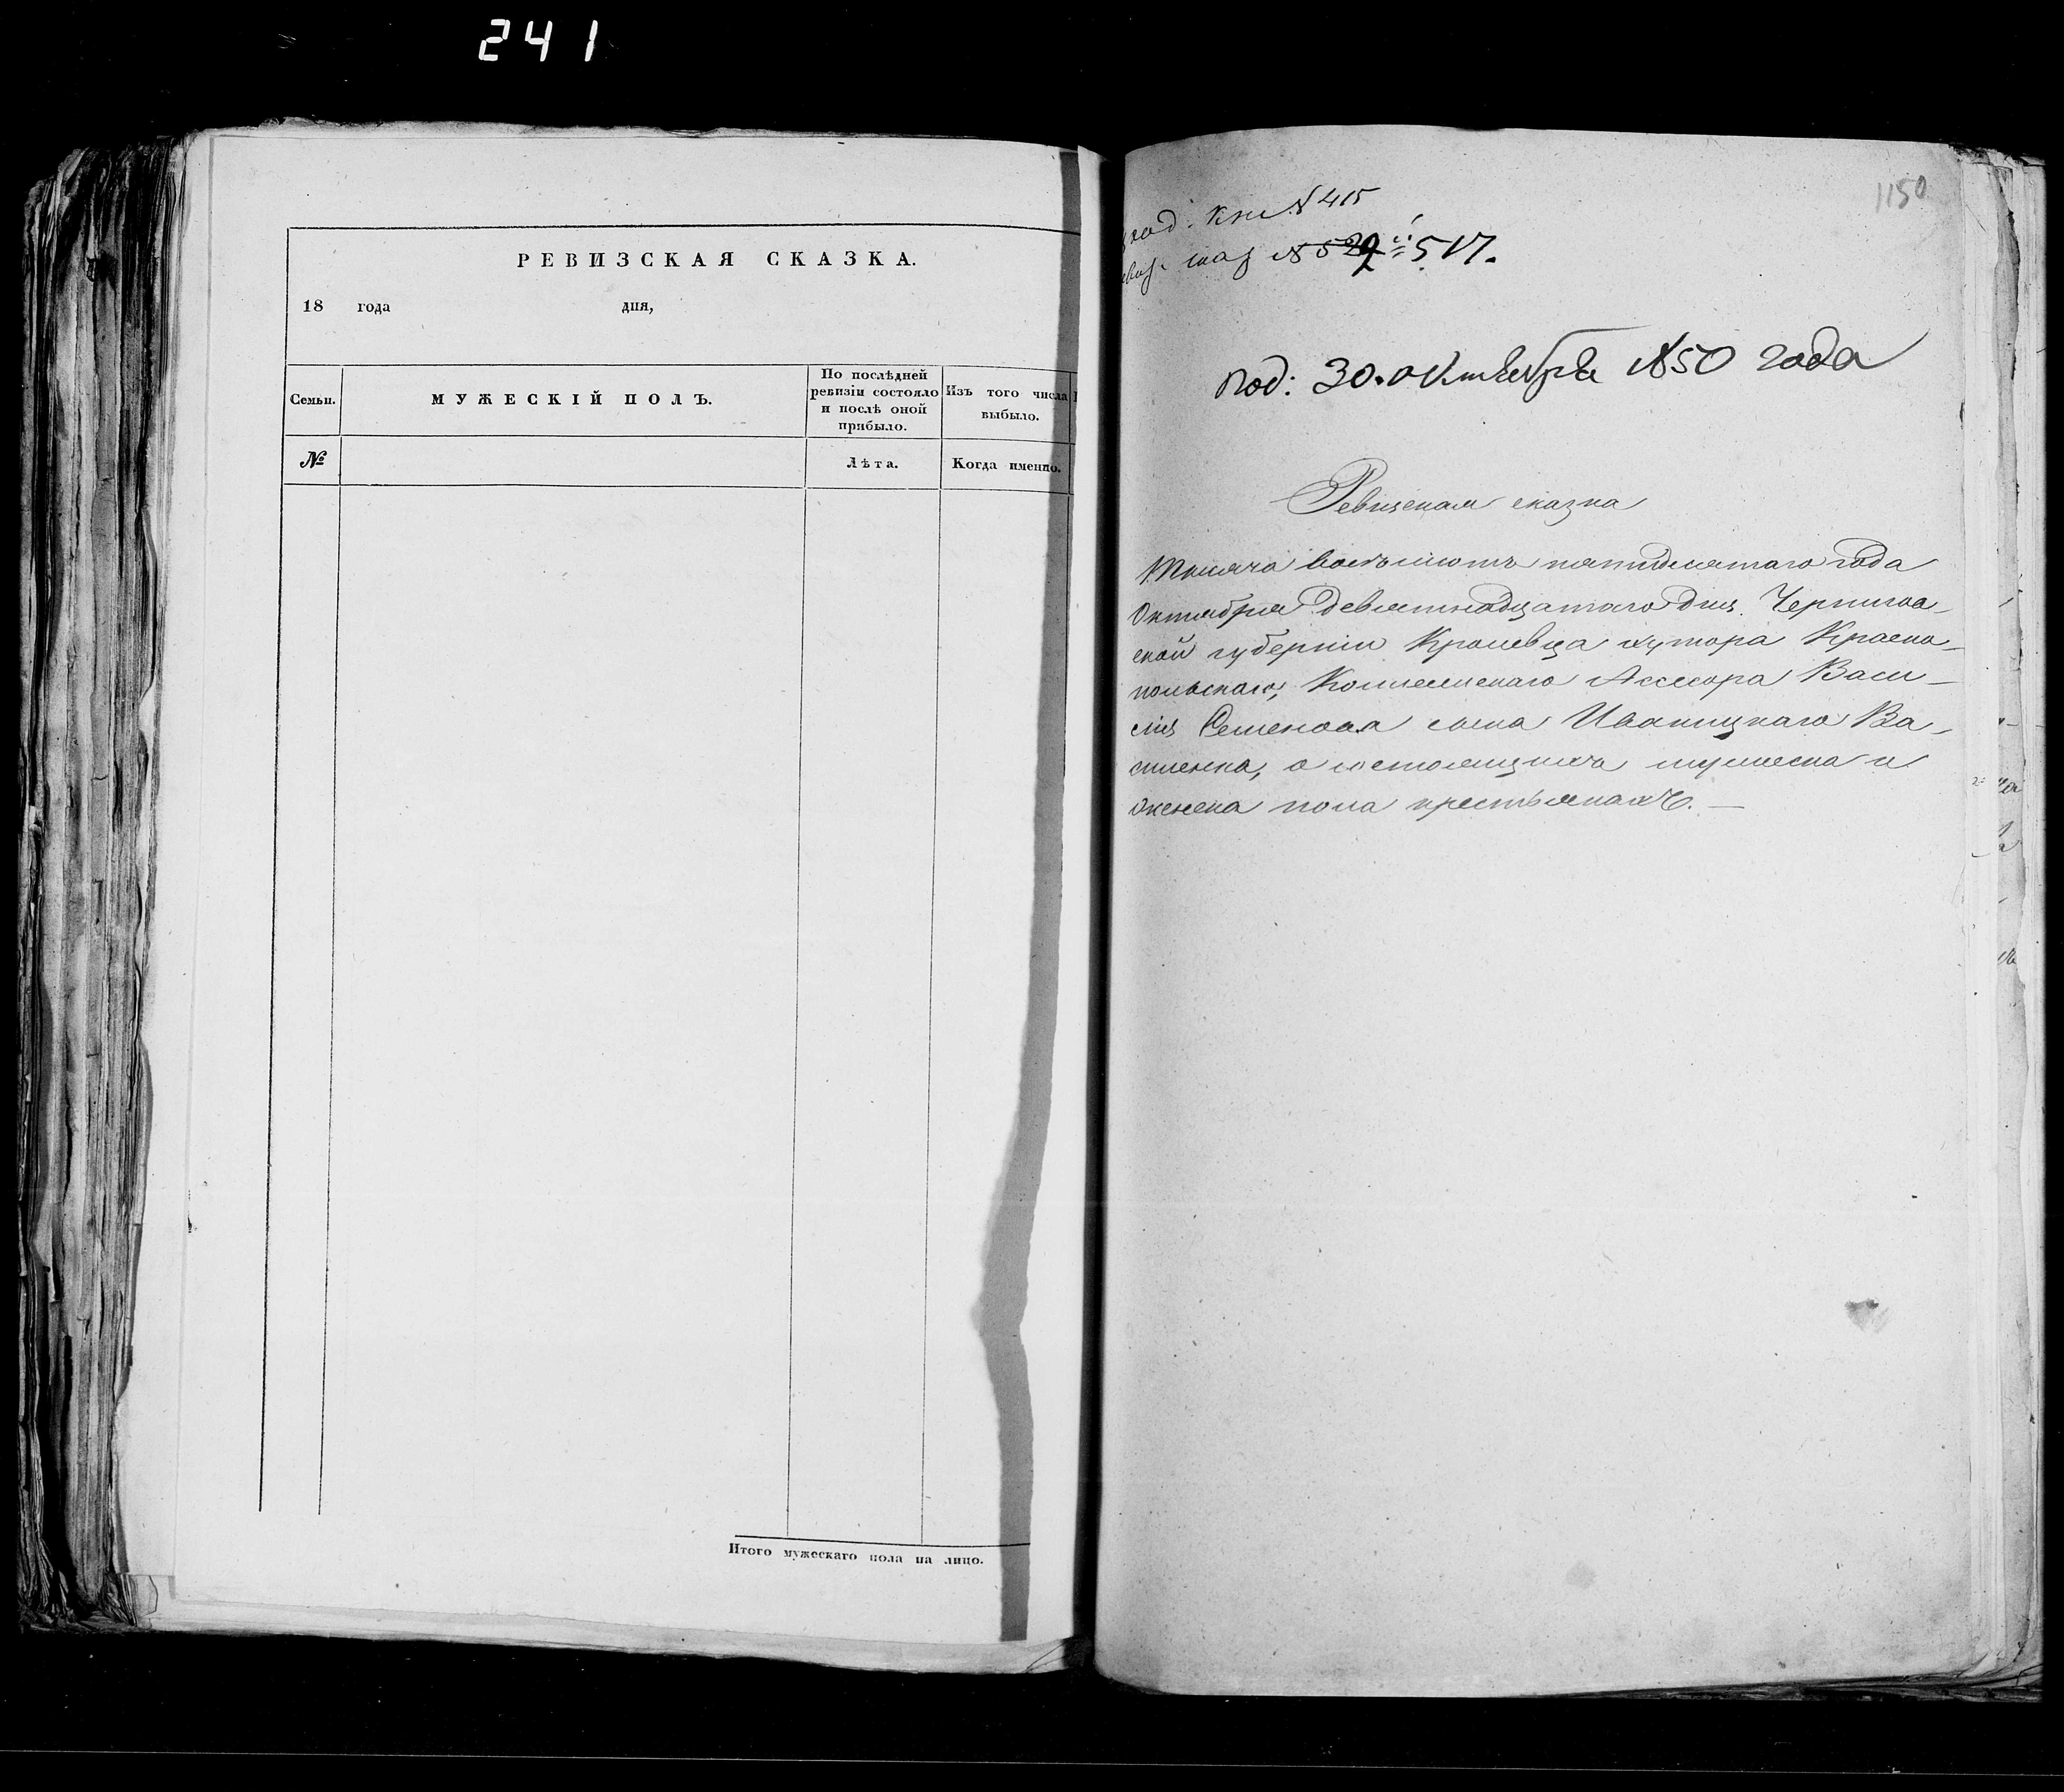 241
РЕВИЗСКАЯ СКАЗКА.
18 года дня,
Семьи.
МУЖЕСКІЙ ПОЛЪ.
По послѣдней
ревизіи состояло
и послѣ оной
прибыло.
Изъ того числа
выбыло.
№
Лѣта.
Когда именно.
Итого мужескаго пола на лицо.
1150
кн № 415
№ 517.
под: 30. октября 1850 года
Ревизская сказка
Тысяча восемьсотъ пятидесятаго года
Октября девятнадцатаго дня. Чернигов-
ской губерніи Кролевца хутора Красно-
польскаго, Коллежскаго Ассесора Васи-
лія Семенова сына Иваницкаго Ва-
силенка, о состоящихъ мужеска и
женска пола крестьянахъ. —